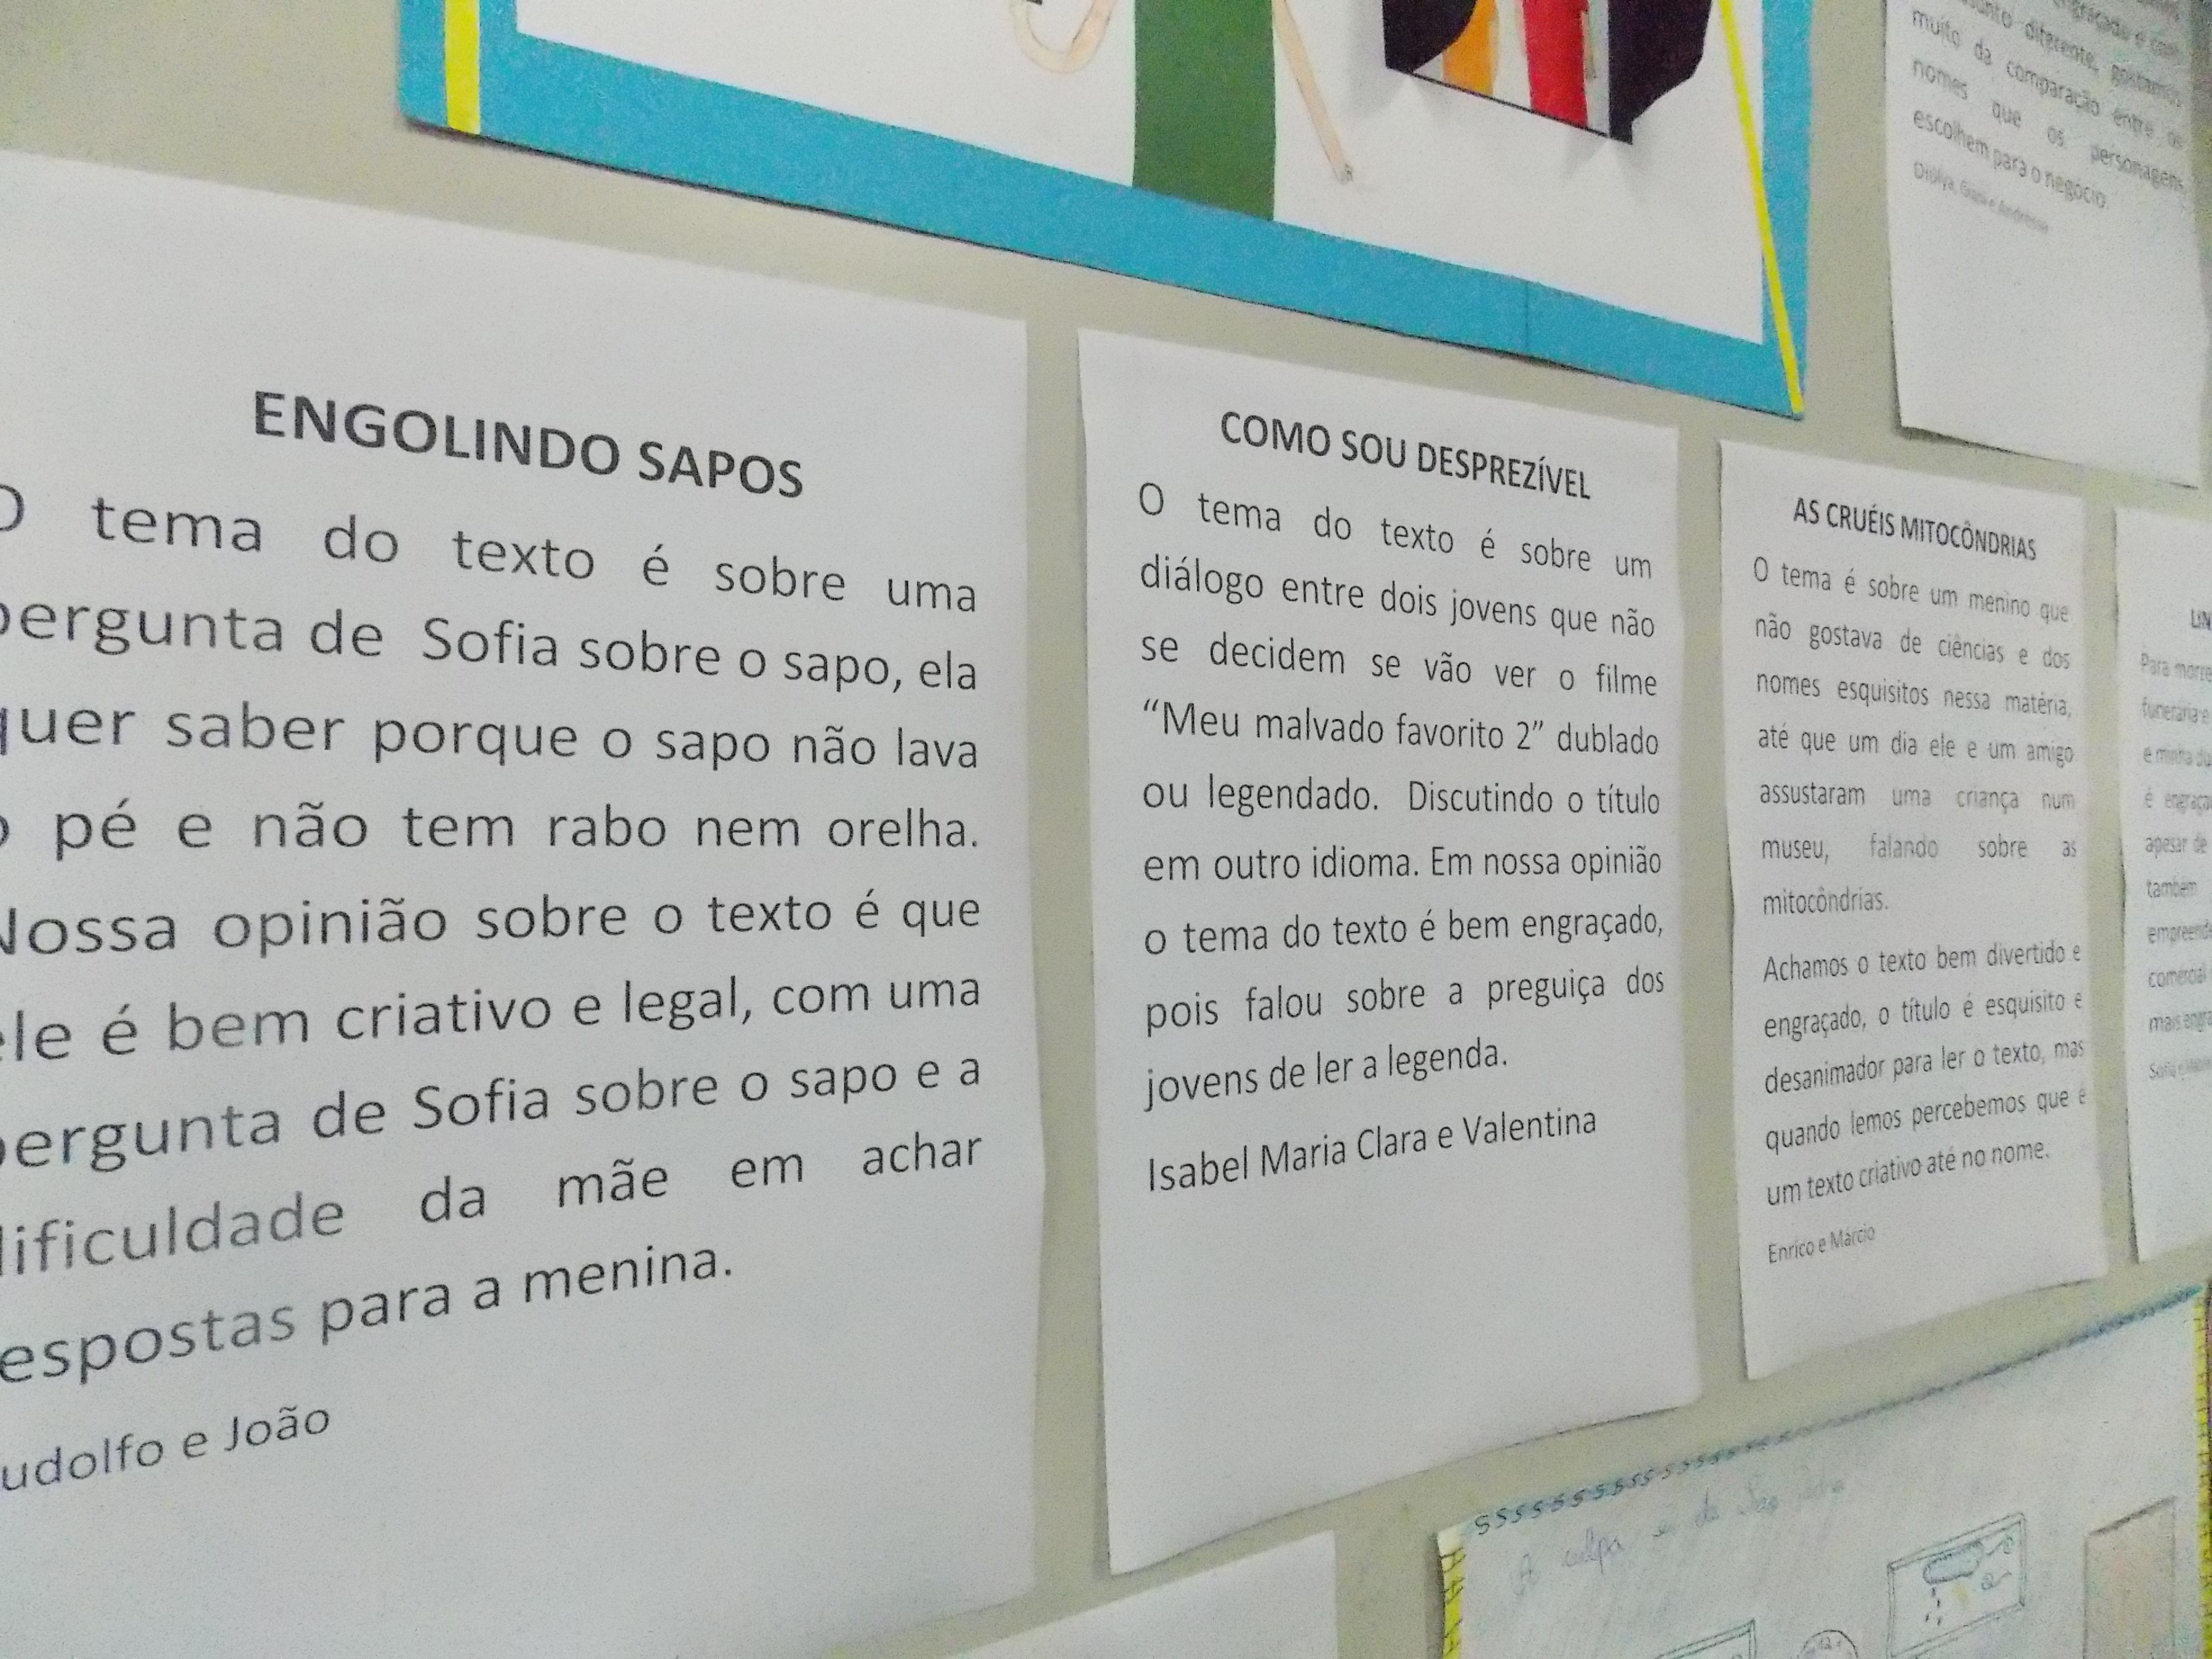 ENGOLINDO SAPOS
O tema do texto é sobre uma
pergunta de Sofia sobre o sapo, ela
quer saber porque o sapo não lava
o pé e não tem rabo nem orelha.
Nossa opinião sobre o texto é que
ele é bem criativo e legal, com uma
pergunta de Sofia sobre o sapo e a
dificuldade da mãe em achar
espostas para a menina.
udolfo e João
COMO SOU DESPREZÍVEL
O tema do texto é sobre um
diálogo entre dois jovens que não
se decidem se vão ver o filme
“Meu malvado favorito 2” dublado
ou legendado. Discutindo o título
em outro idioma. Em nossa opinião
o tema do texto é bem engraçado,
pois falou sobre a preguiça dos
jovens de ler a legenda.
Isabel Maria Clara e Valentina
AS CRUÉIS MITOCÔNDRIAS
O tema é sobre um menino que
não gostava de ciências e dos
nomes esquisitos nessa matéria,
até que um dia ele e um amigo
assustaram uma criança num
museu, falando sobre as
mitocôndrias.
Achamos o texto bem divertido e
engraçado, o título é esquisito e
desanimador para ler o texto, mas
quando lemos percebemos que é
um texto criativo até no nome.
Enrico e Márcio
diferente, gostamos
muito da comparação entre os
nomes que os personagens
escolhem para o negócio.
LIN
Para morre
funerária e
e minha du
é engraça
apesar de
também
empreende
comercial
mais engra
A culpa é de São Pedro